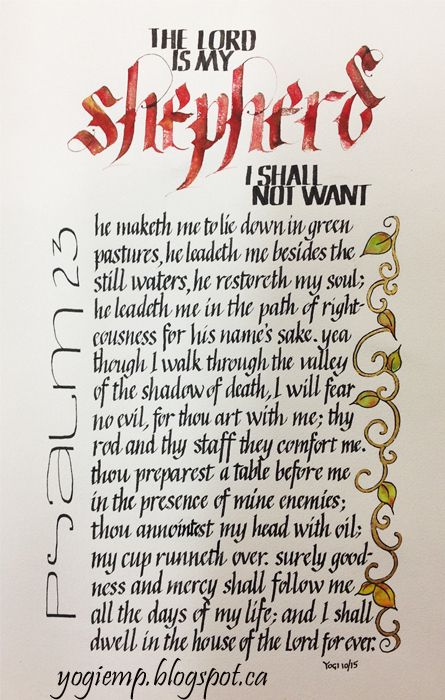 THE LORD
IS MY
shepherd
I SHALL
NOT WANT
Psalm 23
he maketh me to lie down in green
pastures, he leadeth me besides the
still waters, he restoreth my soul;
he leadeth me in the path of right-
eousness for his name's sake. yea
though I walk through the valley
of the shadow of death, I will fear
no evil, for thou art with me; thy
rod and thy staff they comfort me.
thou preparest a table before me
in the presence of mine enemies;
thou annointest my head with oil;
my cup runneth over. surely good-
ness and mercy shall follow me
all the days of my life; and I shall
dwell in the house of the Lord for ever.
YOGI 10/15
yogiemp.blogspot.ca